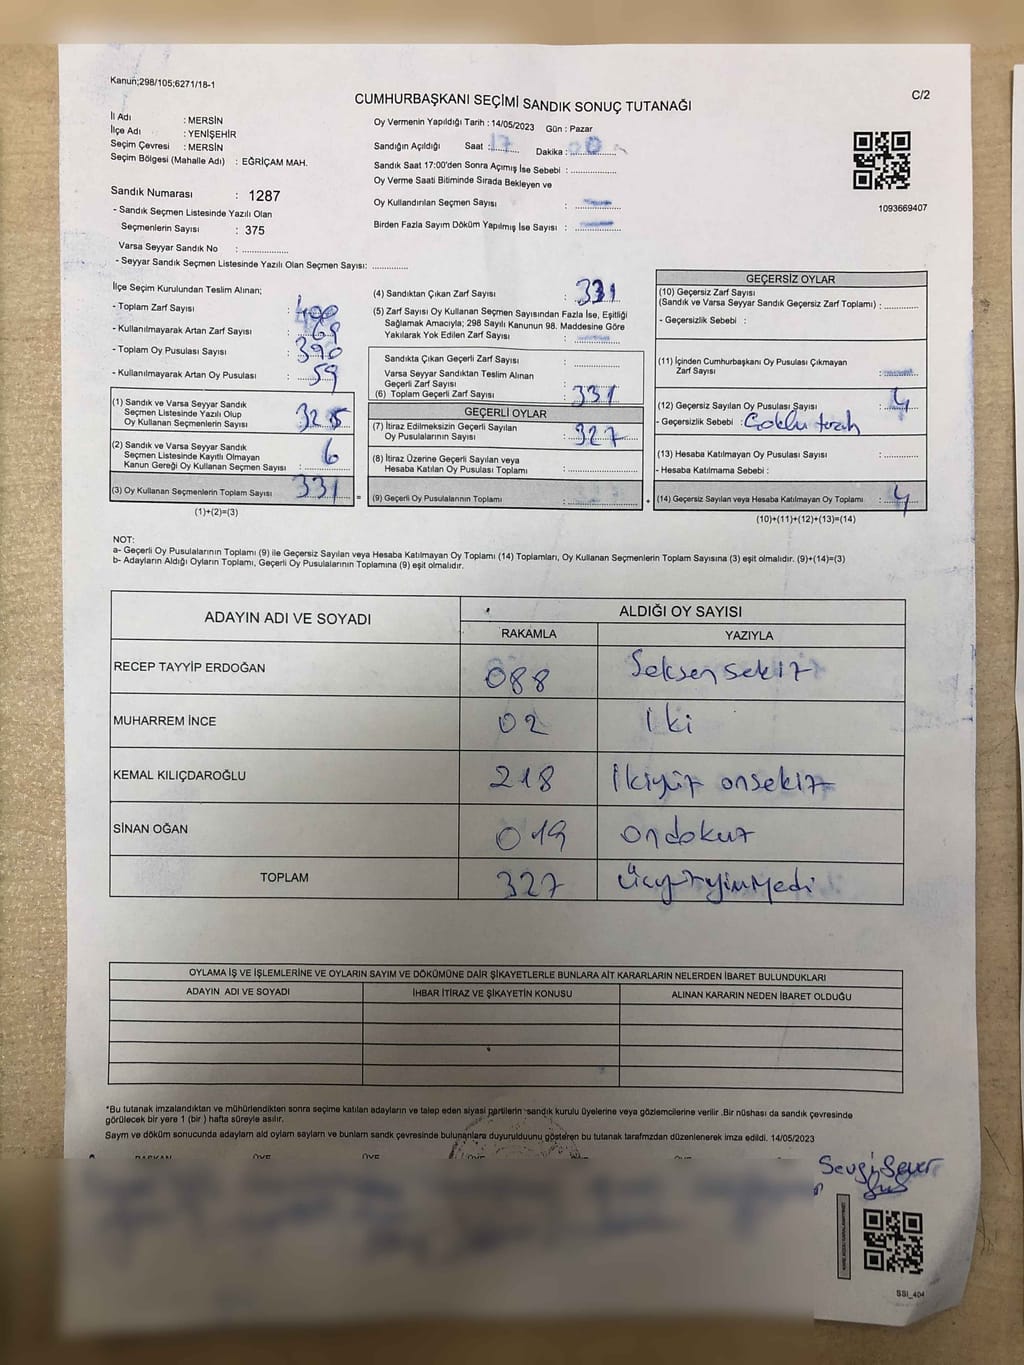 Kanun;298/105;6271/18-1
C/2
CUMHURBAŞKANI SEÇİMİ SANDIK SONUÇ TUTANAĞI
İl Adı : MERSİN
İlçe Adı : YENİŞEHİR
Seçim Çevresi : MERSİN
Seçim Bölgesi (Mahalle Adı) : EĞRİÇAM MAH.
Sandık Numarası : 1287
- Sandık Seçmen Listesinde Yazılı Olan
Seçmenlerin Sayısı : 375
Varsa Seyyar Sandık No : ................
- Seyyar Sandık Seçmen Listesinde Yazılı Olan Seçmen Sayısı: ............
Oy Vermenin Yapıldığı Tarih : 14/05/2023 Gün : Pazar
Sandığın Açıldığı Saat : 17 Dakika :
Sandık Saat 17:00'den Sonra Açımış İse Sebebi : ................
Oy Verme Saati Bitiminde Sırada Bekleyen ve
Oy Kullandırılan Seçmen Sayısı :
Birden Fazla Sayım Döküm Yapılmış İse Sayısı :
1093669407
İlçe Seçim Kurulundan Teslim Alınan;
- Toplam Zarf Sayısı : 400
- Kullanılmayarak Artan Zarf Sayısı : 69
- Toplam Oy Pusulası Sayısı : 390
- Kullanılmayarak Artan Oy Pusulası : 59
(1) Sandık ve Varsa Seyyar Sandık
Seçmen Listesinde Yazılı Olup
Oy Kullanan Seçmenlerin Sayısı : 325
(2) Sandık ve Varsa Seyyar Sandık
Seçmen Listesinde Kayıtlı Olmayan
Kanun Gereği Oy Kullanan Seçmen Sayısı : 6
(3) Oy Kullanan Seçmenlerin Toplam Sayısı : 331
(1)+(2)=(3)
(4) Sandıktan Çıkan Zarf Sayısı : 331
(5) Zarf Sayısı Oy Kullanan Seçmen Sayısından Fazla İse, Eşitliği
Sağlamak Amacıyla; 298 Sayılı Kanunun 98. Maddesine Göre
Yakılarak Yok Edilen Zarf Sayısı :
Sandıkta Çıkan Geçerli Zarf Sayısı : ................
Varsa Seyyar Sandıktan Teslim Alınan
Geçerli Zarf Sayısı :
(6) Toplam Geçerli Zarf Sayısı : 331
GEÇERLİ OYLAR
(7) İtiraz Edilmeksizin Geçerli Sayılan
Oy Pusulalarının Sayısı : 327
(8) İtiraz Üzerine Geçerli Sayılan veya
Hesaba Katılan Oy Pusulası Toplamı : ................
= (9) Geçerli Oy Pusulalarının Toplamı :
GEÇERSİZ OYLAR
(10) Geçersiz Zarf Sayısı
(Sandık ve Varsa Seyyar Sandık Geçersiz Zarf Toplamı) : ............
- Geçersizlik Sebebi :
(11) İçinden Cumhurbaşkanı Oy Pusulası Çıkmayan
Zarf Sayısı :
(12) Geçersiz Sayılan Oy Pusulası Sayısı : 4
- Geçersizlik Sebebi : Çoklu tercih
(13) Hesaba Katılmayan Oy Pusulası Sayısı : ............
- Hesaba Katılmama Sebebi :
+ (14) Geçersiz Sayılan veya Hesaba Katılmayan Oy Toplamı : 4
(10)+(11)+(12)+(13)=(14)
NOT:
a- Geçerli Oy Pusulalarının Toplamı (9) ile Geçersiz Sayılan veya Hesaba Katılmayan Oy Toplamı (14) Toplamları, Oy Kullanan Seçmenlerin Toplam Sayısına (3) eşit olmalıdır. (9)+(14)=(3)
b- Adayların Aldığı Oyların Toplamı, Geçerli Oy Pusulalarının Toplamına (9) eşit olmalıdır.
ADAYIN ADI VE SOYADI ALDIĞI OY SAYISI
RAKAMLA YAZIYLA
RECEP TAYYİP ERDOĞAN 088 Seksensekiz
MUHARREM İNCE 02 İki
KEMAL KILIÇDAROĞLU 218 İkiyüz onsekiz
SİNAN OĞAN 019 ondokuz
TOPLAM 327 Üçyüzyirmiyedi
OYLAMA İŞ VE İŞLEMLERİNE VE OYLARIN SAYIM VE DÖKÜMÜNE DAİR ŞİKAYETLERLE BUNLARA AİT KARARLARIN NELERDEN İBARET BULUNDUKLARI
ADAYIN ADI VE SOYADI İHBAR İTİRAZ VE ŞİKAYETİN KONUSU ALINAN KARARIN NEDEN İBARET OLDUĞU
*Bu tutanak imzalandıktan ve mühürlendikten sonra seçime katılan adayların ve talep eden siyasi partilerin sandık kurulu üyelerine veya gözlemcilerine verilir .Bir nüshası da sandık çevresinde
görülecek bir yere 1 (bir ) hafta süreyle asılır.
Sayım ve döküm sonucunda adayların ald oyların sayların ve bunlam sandk çevresinde bulunanlara duyurulduunu gösteren bu tutanak tarafmzdan düzenlenerek imza edildi. 14/05/2023
BAŞKAN ÜYE ÜYE ÜYE ÜYE
Sevgi Sever
SSI_404